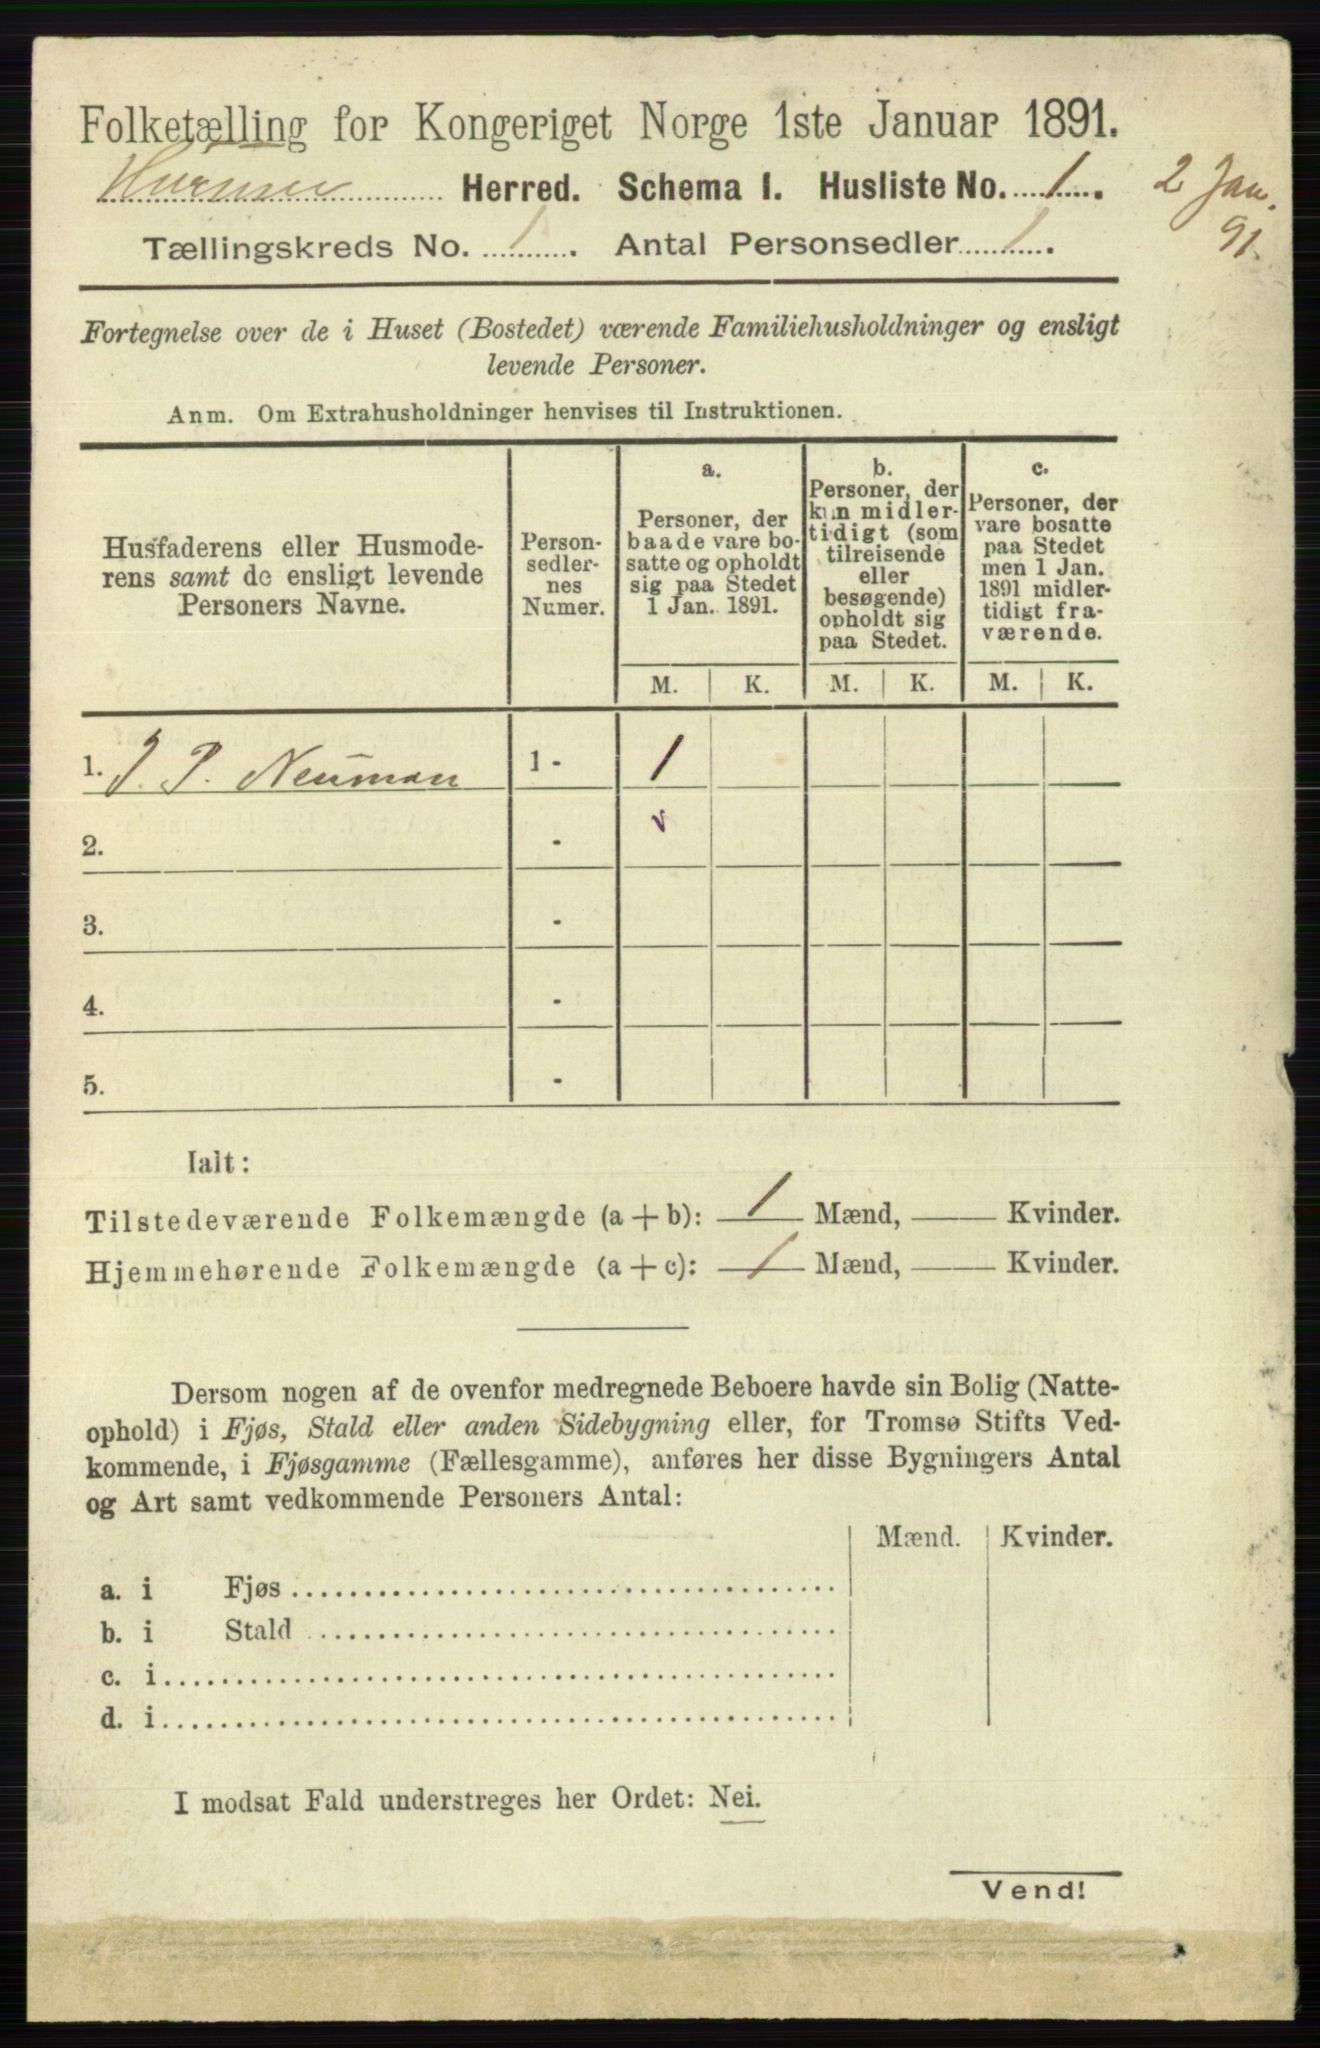 Folketælling for Kongeriget Norge 1ste Januar 1891.
Hurum Herred. Schema I. Husliste No. 1.
2 Jan.
91.
Tællingskreds No. 1. Antal Personsedler 1.
Fortegnelse over de i Huset (Bostedet) værende Familiehusholdninger og ensligt
levende Personer.
Anm. Om Extrahusholdninger henvises til Instruktionen.
Husfaderens eller Husmode-
rens samt de ensligt levende
Personers Navne.
Person-
sedler-
nes
Numer.
a.
Personer, der
baade vare bo-
satte og opholdt
sig paa Stedet
1 Jan. 1891.
b.
Personer, der
kun midler-
tidigt (som
tilreisende
eller
besøgende)
opholdt sig
paa Stedet.
c.
Personer, der
vare bosatte
paa Stedet
men 1 Jan.
1891 midler-
tidigt fra-
værende.
M. K. M. K. M. K.
1. J. P. Neuman 1 - 1
2. - v
3. -
4. -
5. -
Ialt:
Tilstedeværende Folkemængde (a+b): 1 Mænd, — Kvinder.
Hjemmehørende Folkemængde (a+c): 1 Mænd, — Kvinder.
Dersom nogen af de ovenfor medregnede Beboere havde sin Bolig (Natte-
ophold) i Fjøs, Stald eller anden Sidebygning eller, for Tromsø Stifts Ved-
kommende, i Fjøsgamme (Fællesgamme), anføres her disse Bygningers Antal
og Art samt vedkommende Personers Antal:
Mænd. Kvinder.
a. i Fjøs
b. i Stald
c. i
d. i
I modsat Fald understreges her Ordet: Nei.
Vend!